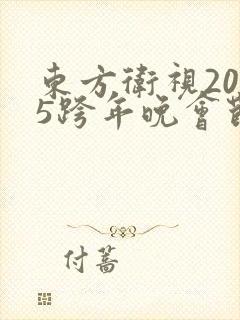 東方衛視20
5跨年晚會
付蔷